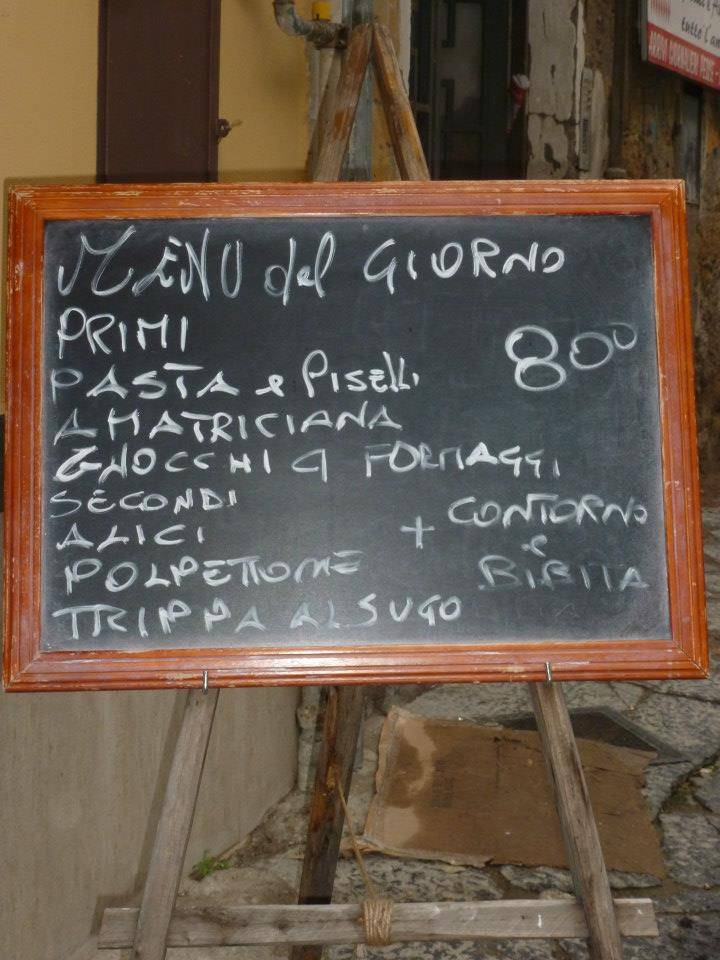 MENU del GIORNO
PRIMI
8 00
PASTA e PISELLI
AMATRICIANA
GNOCCHI 4 FORMAGGI
SECONDI
ALICI
+ CONTORNO
e
BIBITA
POLPETTONE
TRIPPA AL SUGO
tutto l'an